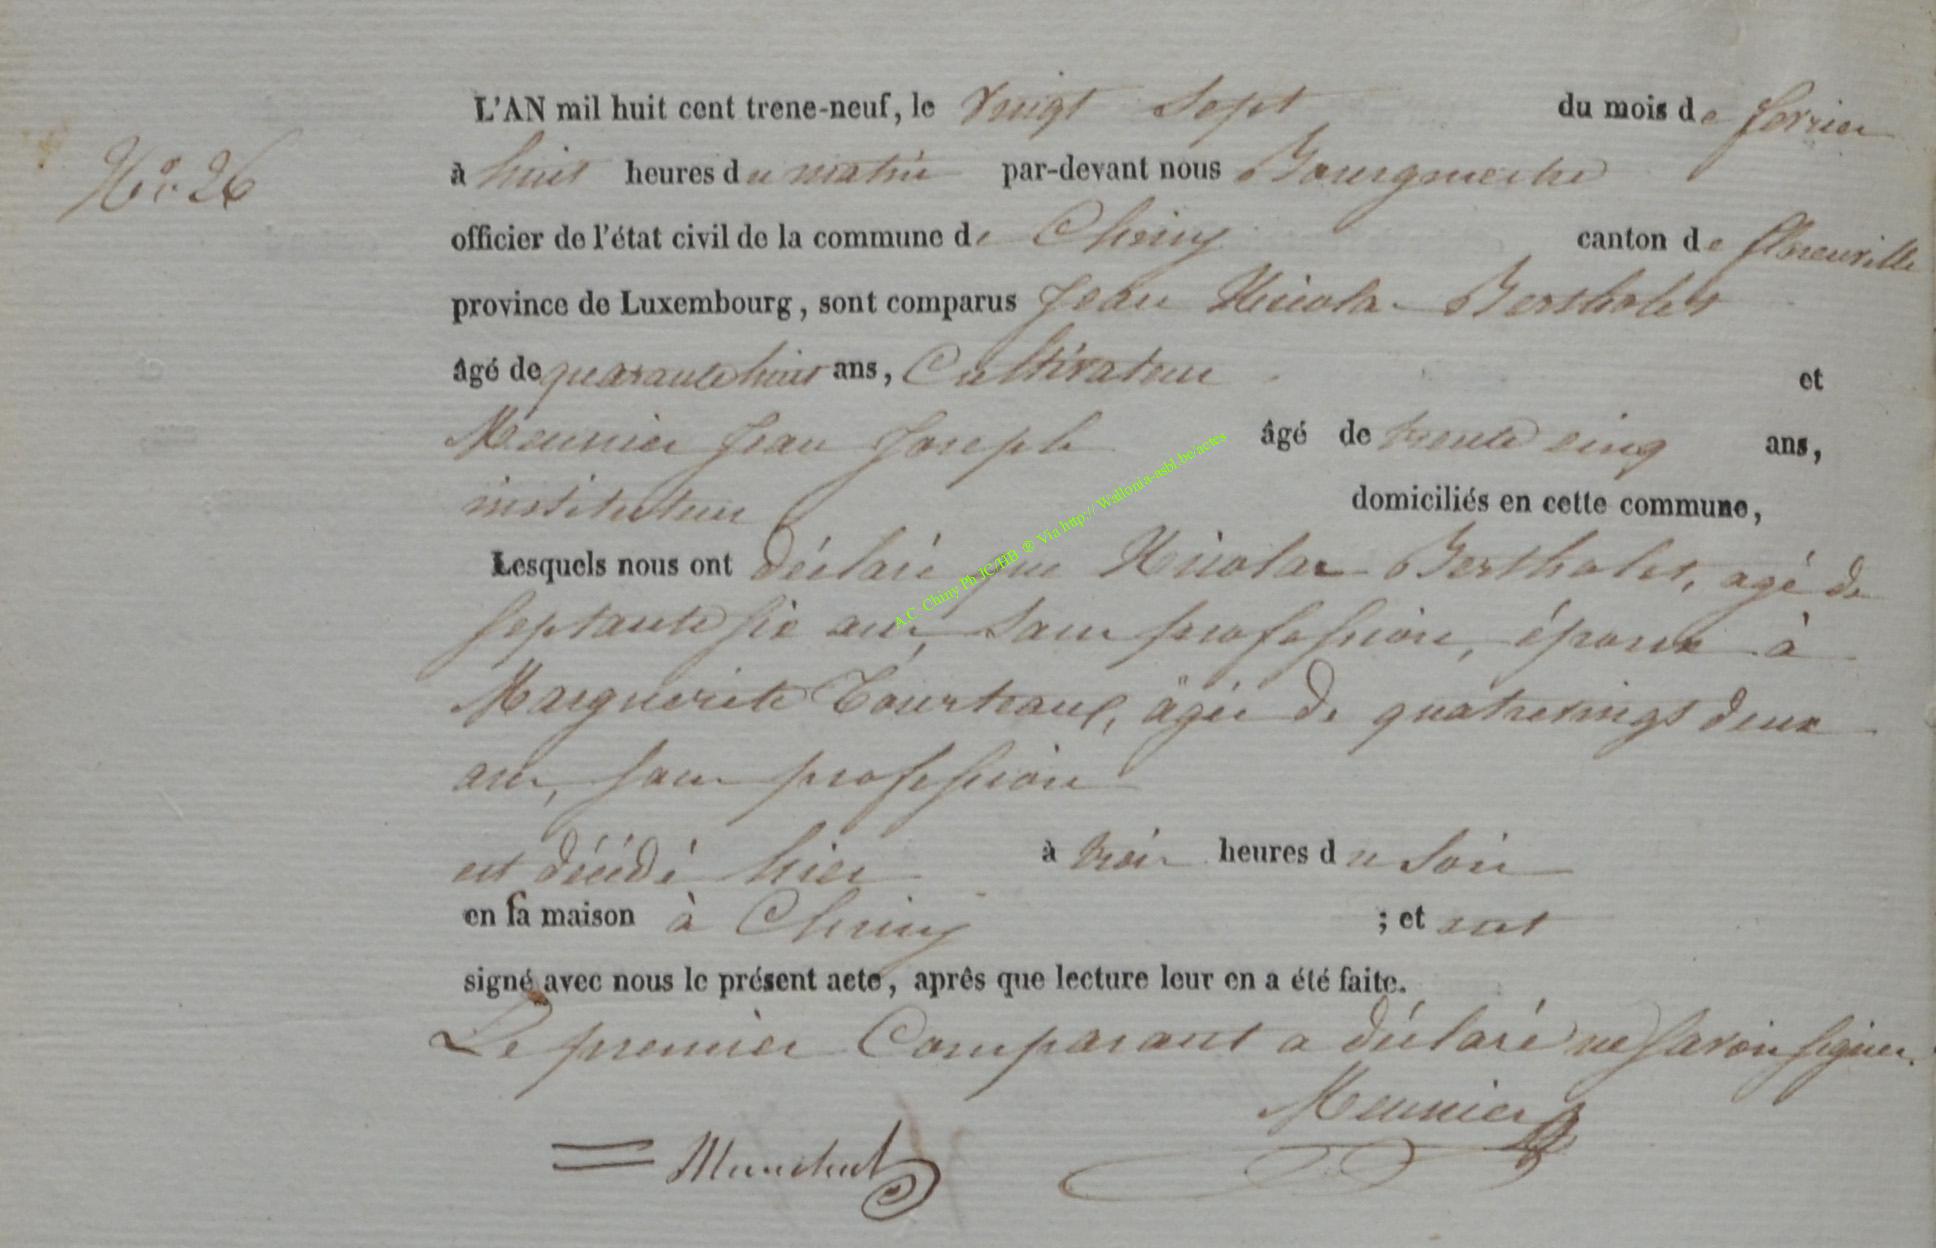 L'AN mil huit cent trene-neuf, le vingt sept du mois de fevrier
No. 26
à huit heures du matin par-devant nous Bourguemestre
officier de l'état civil de la commune de Chiny canton de florenville
province de Luxembourg, sont comparus Jean Nicolas Bertholet
âgé de quarante huit ans, Cultivateur et
Meunier Jean Joseph âgé de trente cinq ans,
instituteur domiciliés en cette commune,
Lesquels nous ont déclaré que Nicolas Bertholet, agé de
septante six ans, sans profession, époux à
Marguerite Tourteaux, âgée de quatrevingt deux
ans, sans profession
est décédé hier à trois heures du soir
en sa maison à Chiny ; et ont
signé avec nous le présent acte, après que lecture leur en a été faite.
Le premier Comparant a déclaré ne savoir signer.
Meunier
A.C. Chiny Ph JC/HB ® Via http:// Wallonia-asbl.be/actes